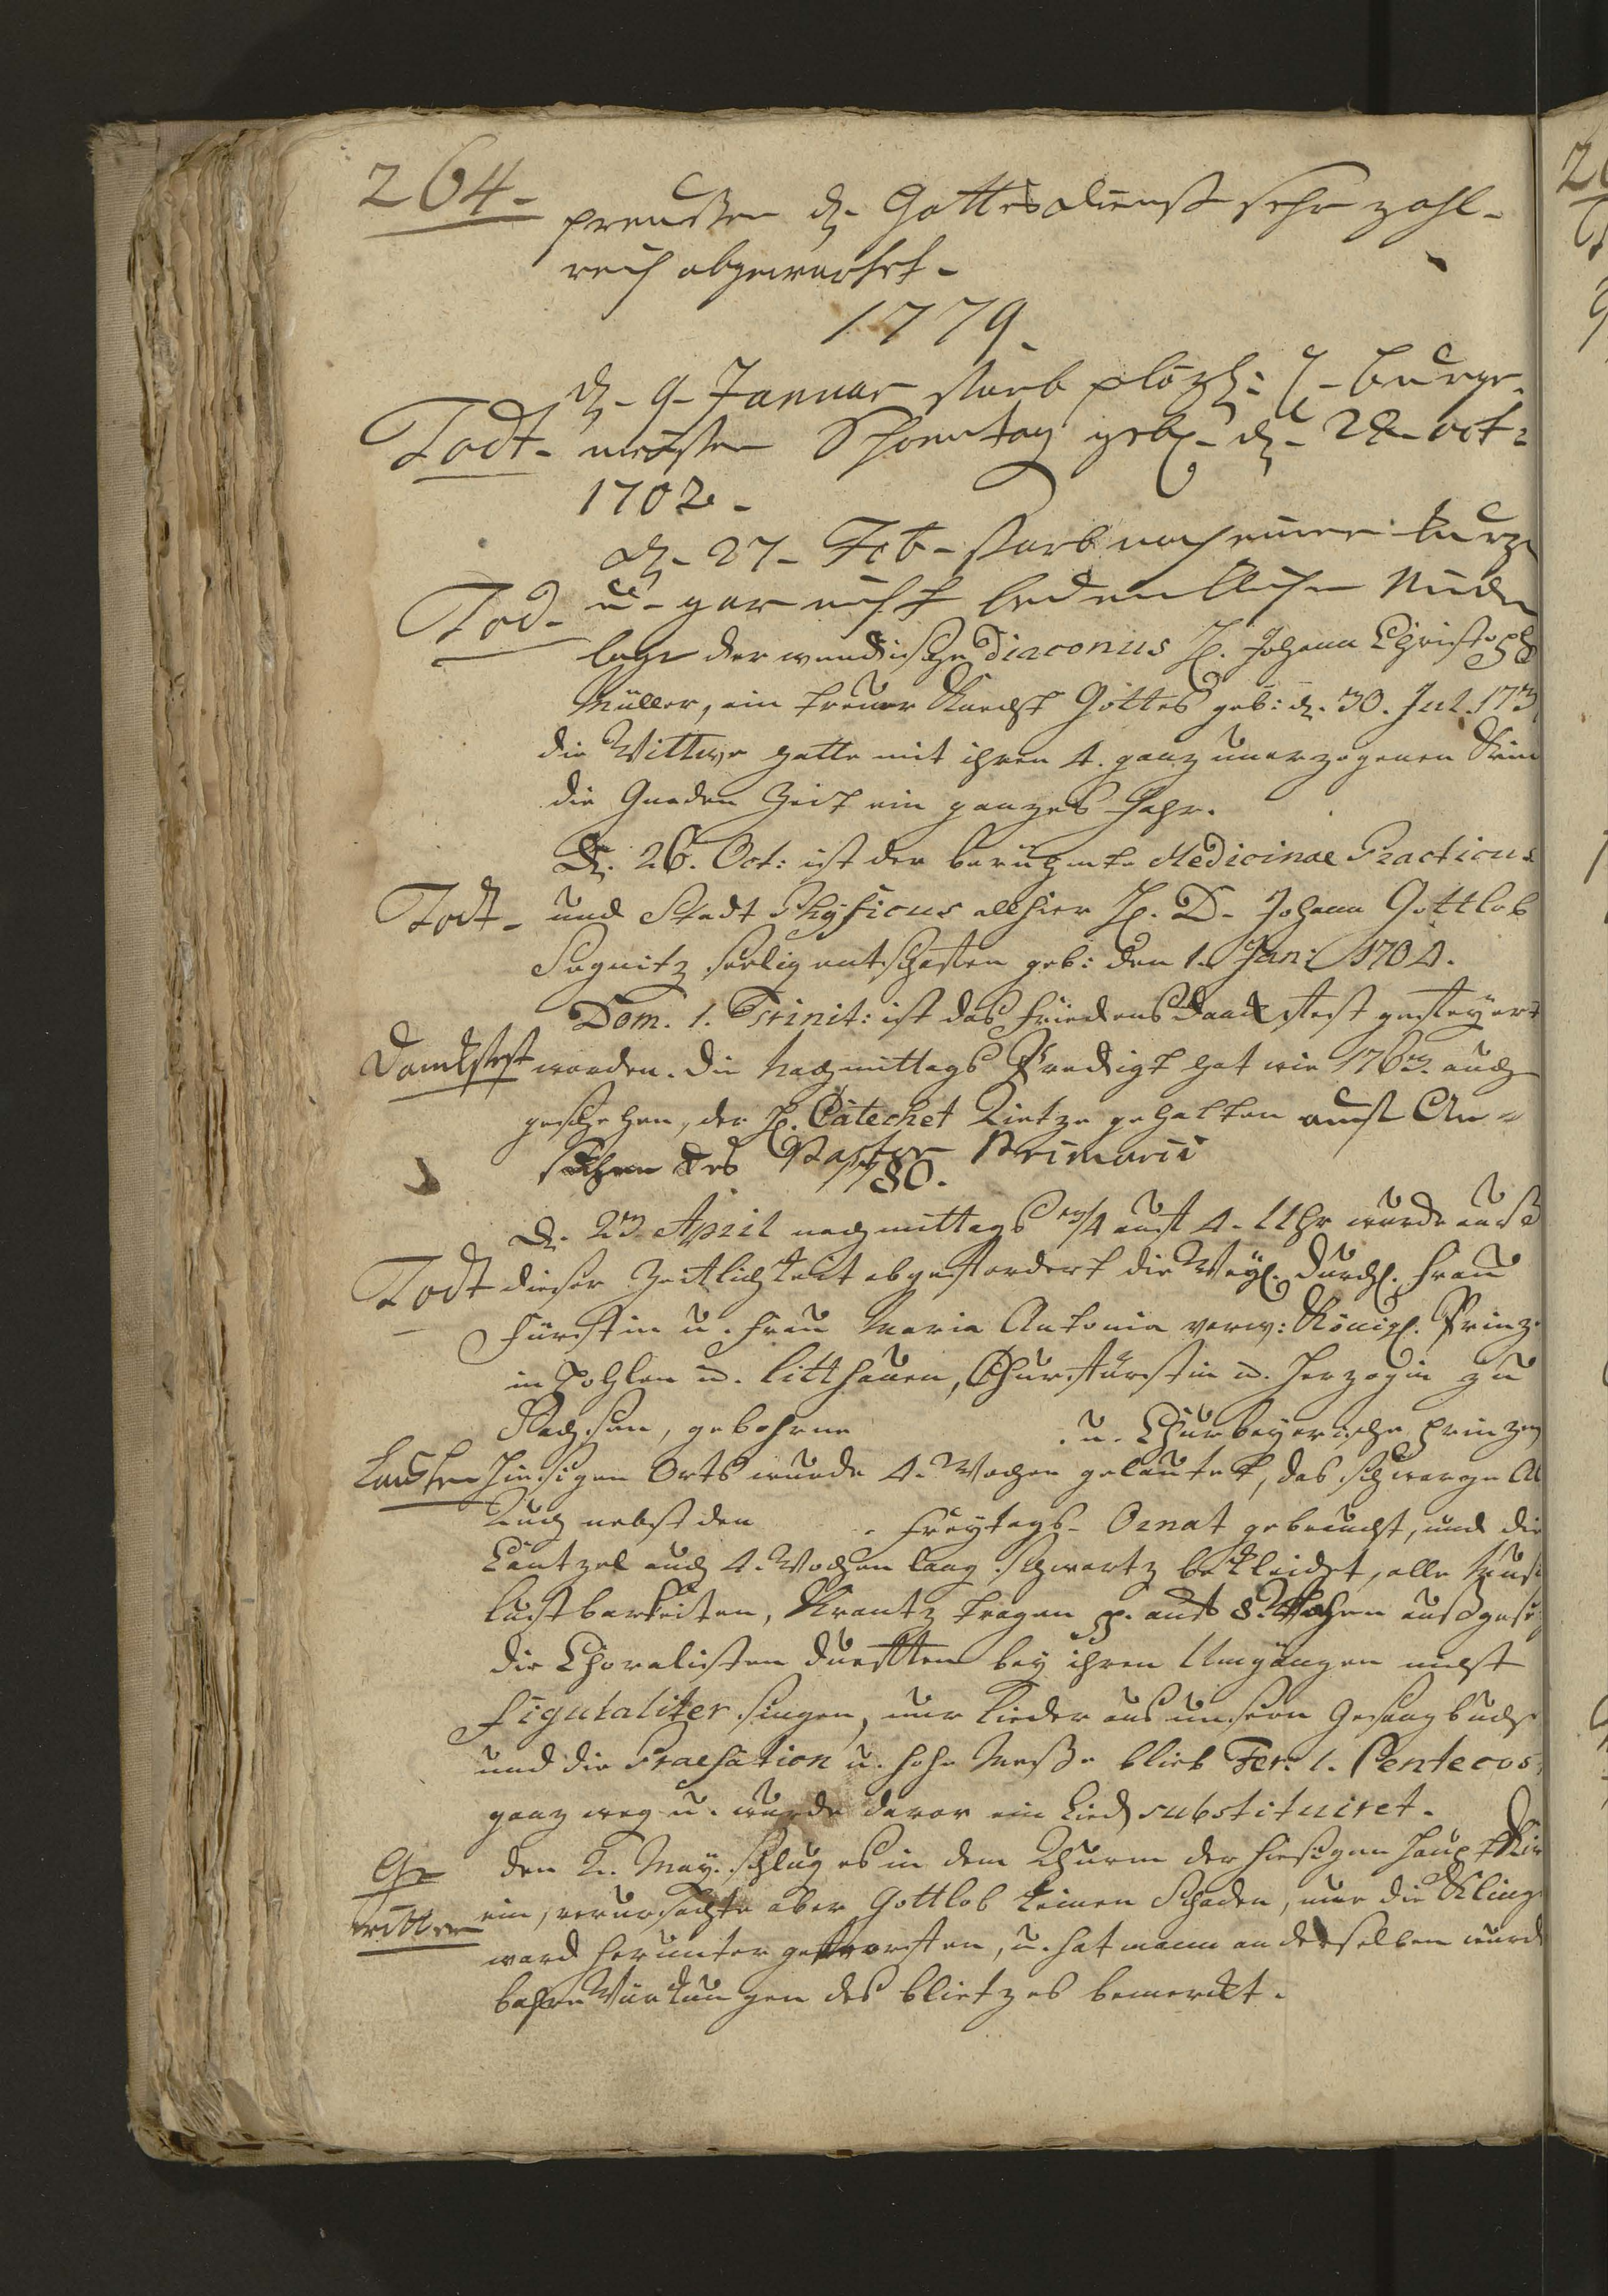 264.
preussen d. Gottesdienst sehr zahl-
reich abgewartet.
1779.
d. 9. Januar starb plözl: H. Burge-
Todt. meister Schöntag geb. d. 22. oct:
1702.
d. 27. Feb. starb nach einer kurze
Tod. u. gar nicht bedencklichen Nieder
lage der wendische Diaconus H. Johann Christoph
Müller, ein treuer Knecht Gottes geb: d. 30. Jul. 173
die Wittwe hatte mit ihren 4. ganz unerzogenen Kin
die Gnaden Zeit ein ganzes Jahr.
D. 26. Oct: ist der berühmte Medicinae Practicus
Todt. und Stadt Physicus allhier H. D. Johann Gottlob
Segnitz seelig entschlafen geb: den 1. Jan: 1704.
Dom. 1. Trinit: ist das Friedens Danckfest gefeyert
Danckfest worden. Die Nachmittags Predigt hat wie 1763. auch
geschehen, der H. Catechet Tietze gehalten auf An-
suchen des Pastor Primarii
1780.
D. 23. April nachmittags 3/4 auf 4. Uhr wurde auß
Todt dieser Zeitlichkeit abgefordert die Weyl. Durchl. Frau
Fürstin u. Frau Maria Antonia verw: Königl. Prinz.
in Pohlen u. Litthauen, Churfürstin u. Herzogin zu
Sachsen, gebohrne . u. Churbayerische Prinzeß
Lauten Hiesigen Orts wurde 4. Wochen gelautet, das schwarze A
Tuch nebst den . Freytags-Ornat gebraucht, und die
Cantzel auch 4. Wochen lang schwartz bekleidet, alle Musi
Lustbarkeiten, Krantz tragen p. auf 8. Wochen außgese
die Choralisten durften bey ihren Umgängen nicht
figuraliter singen, nur Lieder aus unsern Gesangbuche
und die Praefation u. hohe Messe blieb Fer: 1. Pentecos
ganz weg u. wurde davor ein Lied substituiret.
Ge den 2. May. schlug es in dem Thurm der hiesigen Haupt Kir
witter ein, verursachte aber Gottlob keinen Schaden, nur die Kling
ward herunter geworfen, u. hat mann an derselben wund
bahre Würkungen des Blietzes bemerckt.